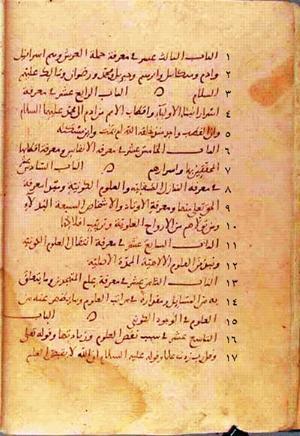 ١ الباب الثالث عشر في معرفة حملة العرش وهم اسرافيل
٢ وادم وميكائيل وابرهيم وجبريل ومحمد ورضوان ومالك عليهم
٣ السلام الباب الرابع عشر في معرفة
٤ اسرار انبياء الاولياء واقطاب الامم من ادم الى محمد عليهما السلام
٥ وان القطب واحد منذ خلقه الله لم يمت واين مسكنه
٦ الباب الخامس عشر في معرفة الانفاس ومعرفة اقطابها
٧ المحققين بها واسرارهم الباب السادس عشر
٨ في معرفة المنازل السفلية والعلوم الكونية ومبدأ معرفة
٩ الحق تعلى منها ومعرفة الاوتاد والاشخاص السبعة البدلاء
١٠ ومن تولاهم من الارواح العلوية وترتيب افلاكها
١١ الباب السابع عشر في معرفة انتقال العلوم الكونية
١٢ ونبذ من العلوم الالاهية الممدة الاصلية
١٣ الباب الثامن عشر في معرفة علم المتهجدين وما يتعلق
١٤ به من المسائل ومقداره في مراتب العلوم وما يظهر عنه من
١٥ العلوم في الوجود الكوني الباب
١٦ التاسع عشر في سبب نقص العلوم وزيادتها وقوله تعلى
١٧ وقل رب زدني علما وقوله عليه السلام ان الله لا يقبض العلم